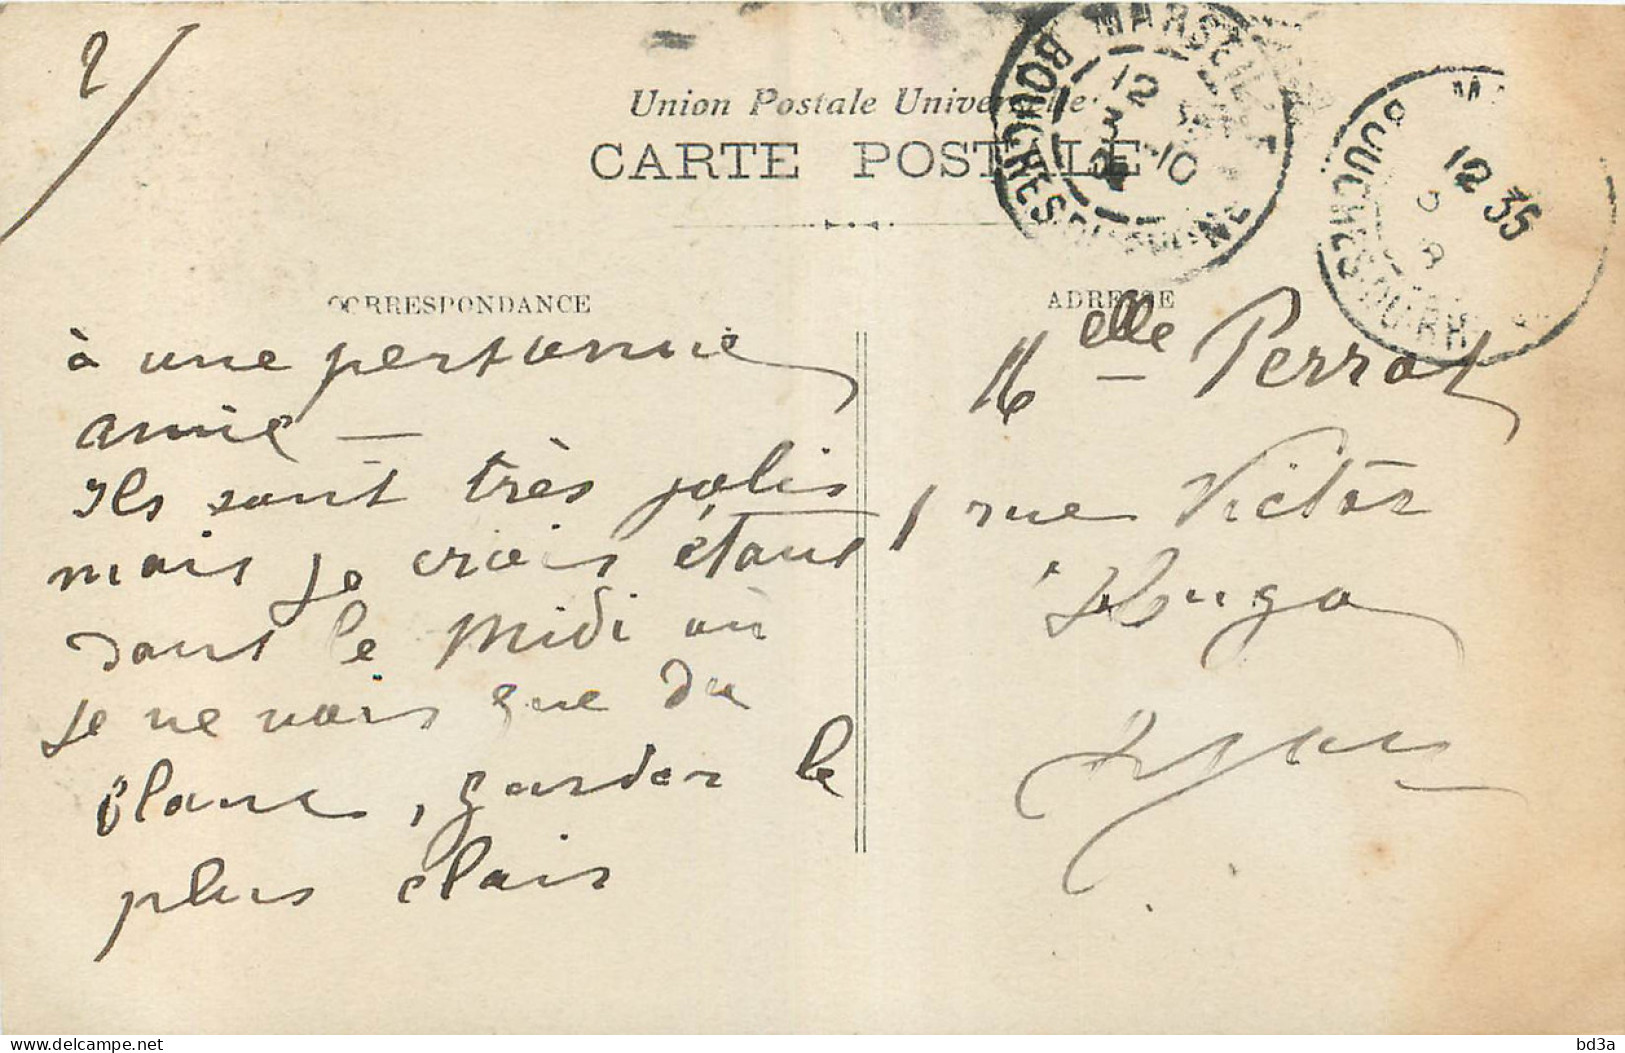 2/
Union Postale Universelle
CARTE POSTALE
MARSEILLE
12
3 -10
BOUCHES-DU-RHONE
12 35
BOUCHES-DU-RH
CORRESPONDANCE
ADRESSE
à une personne
amie —
Ils sont très jolis
mais je crois étant
dans le Midi où
je ne vois que du
blanc, garder le
plus clair
Melle Perrot
1 rue Victor
Hugo
Lyon
bd3a